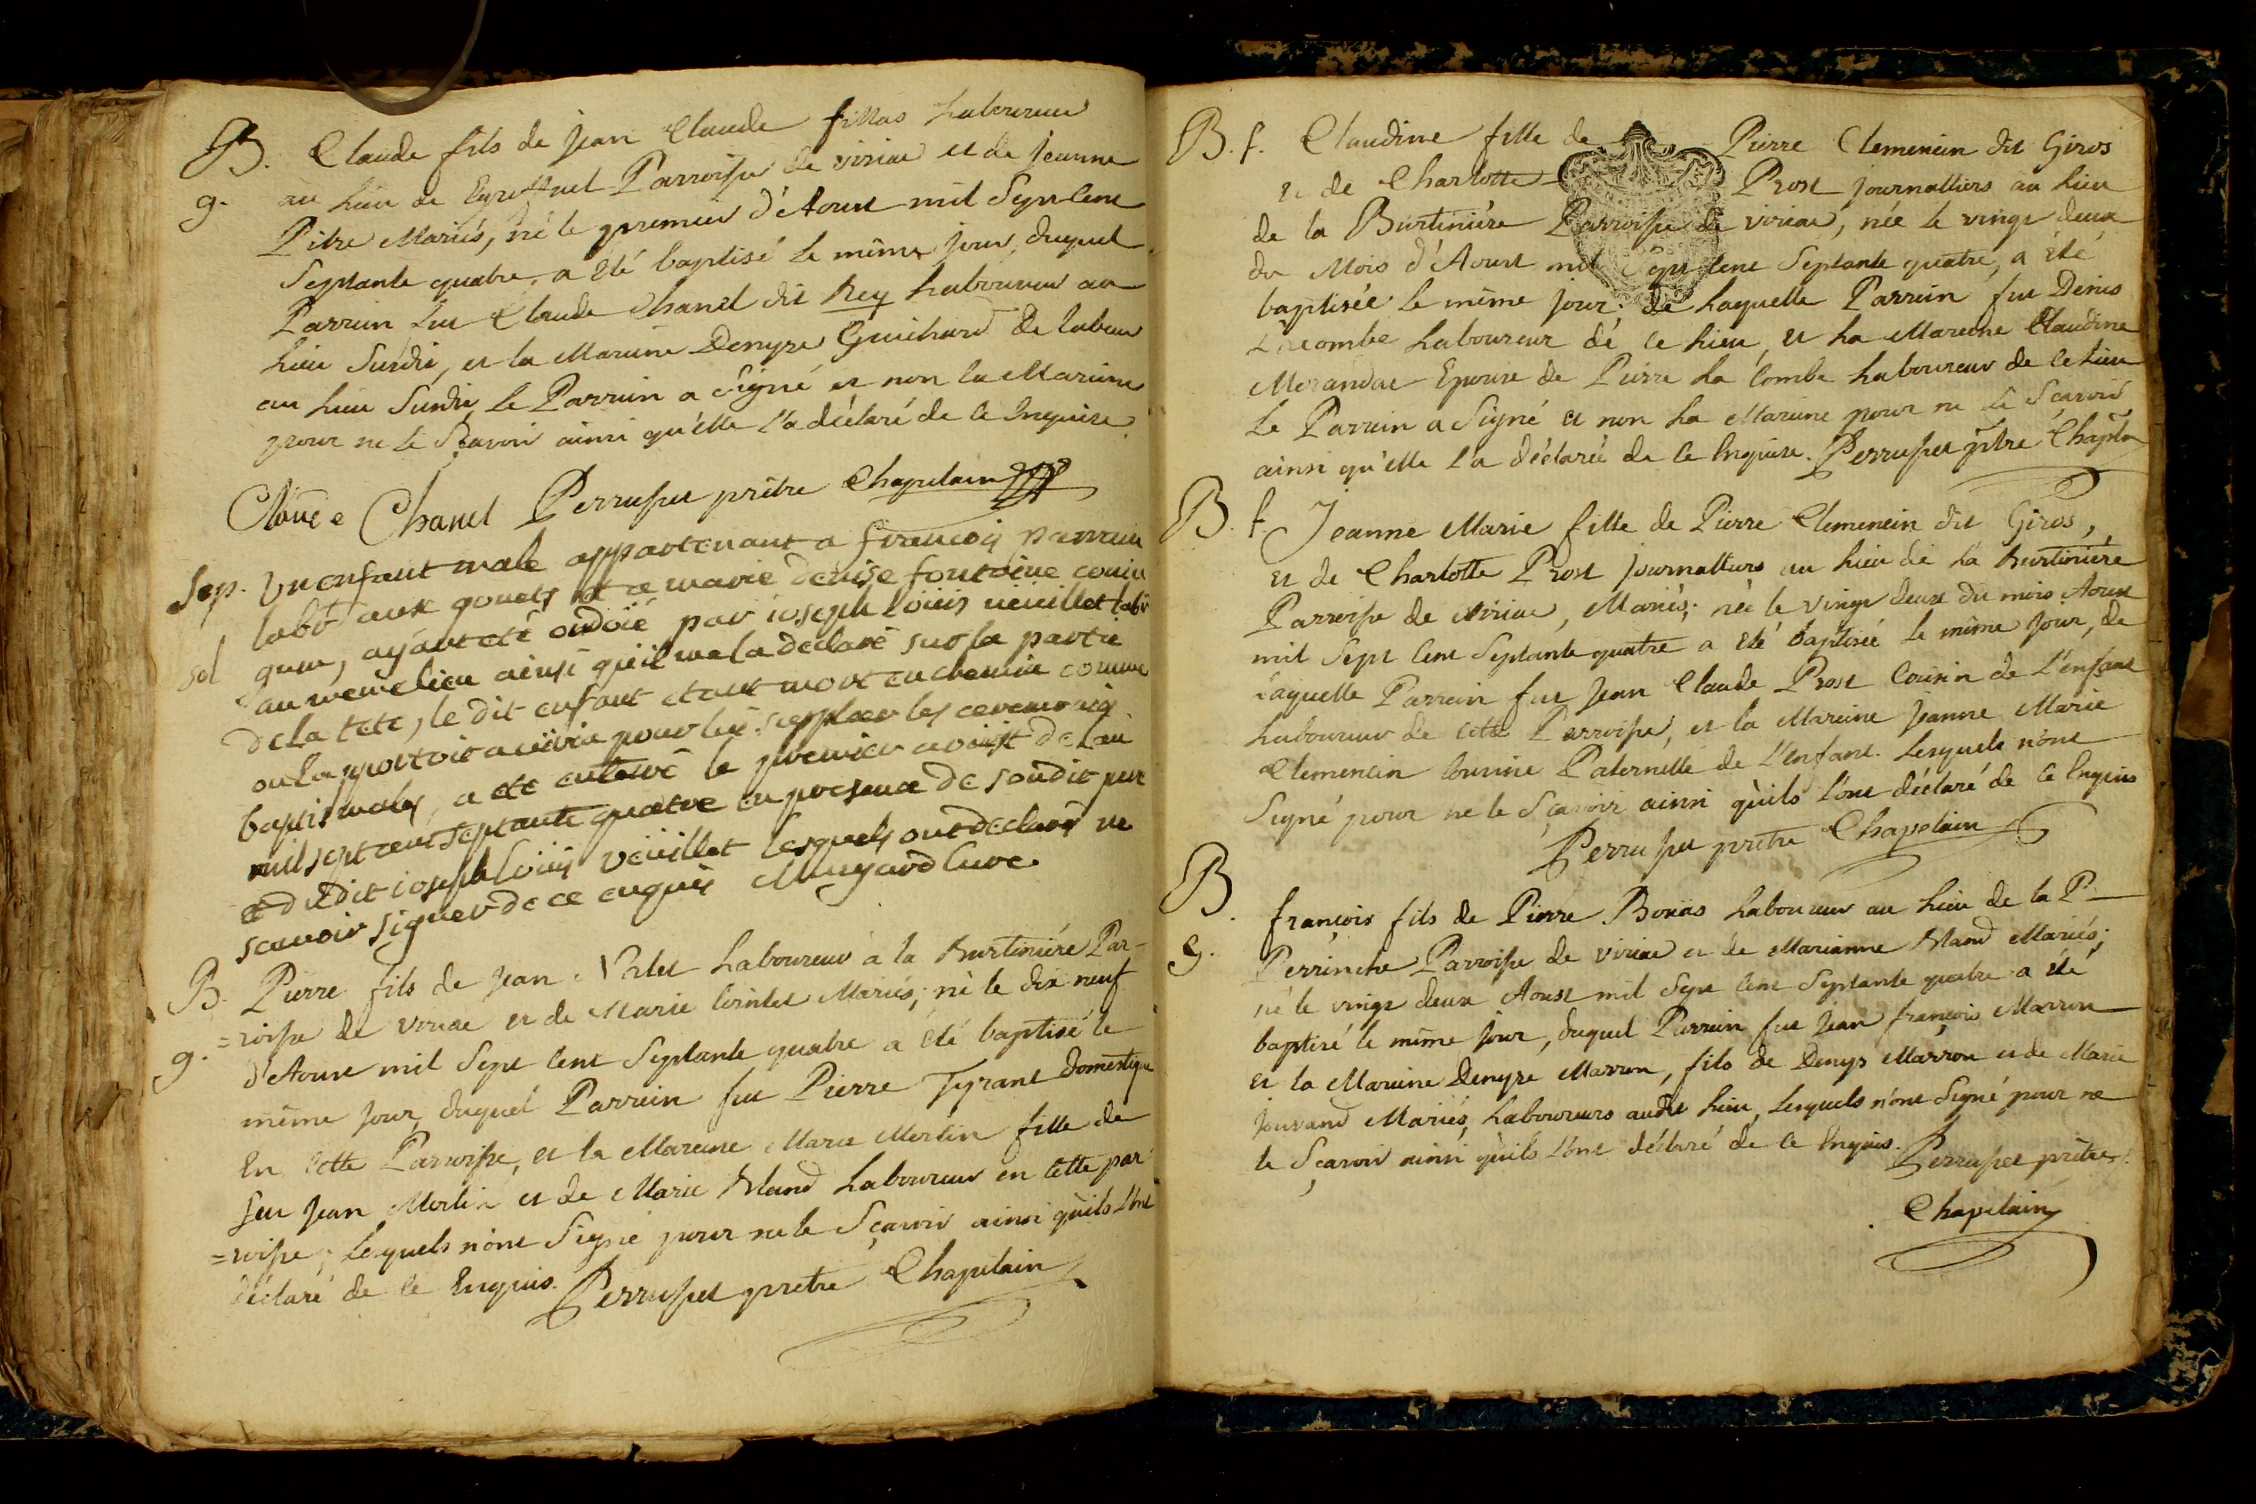 B. Claude fils de Jean Claude fillas Laboureur
g. au Lieu de Parroisse de viriac et de Jeanne
Pitre Mariés, né le premier d'Aoust mil Sept Cent
Septante quatre, a été baptisé le même jour, duquel
Parrein fut Claude Chanel dit Rey Laboureur au
Lieu Susdit, et la Mareine Denyse Guichard de labeur
au Lieu Susdit, Le Parrein a Signé et non la Mareine
pour ne le Sçavoir ainsi qu'elle l'a déclaré de Ce Enquise.
Claude Chanel Perruset prêtre Chapelain
Sep. Un enfant male appartenant a francois parrain
labr aux gouets et a marie denise fontaine conin
sol gum, ayant eté ondoïé par ioseph loüis veuillet labr
au meme lieu ainsi qu'il me la declaré sur la partie
de la tete, le dit enfant etant mort en chemin comme
on l'apportoit a viria pour lui suppleer les ceremonies
baptismales, a eté enterré le premier aoust de l'an
mil sept cent septante quatre en presence de soudit pere
et dudit ioseph loüis veüillet lesquels ont declaré ne
scavoir signer de ce enquis Curé.
B. Pierre fils de Jean Valet Laboureur à la Burtiniére Par-
g. =roisse de viriac et de Marie Cointet Mariés; né le dix neuf
d'Aoust mil Sept Cent Septante quatre a été baptisé le
même jour, duquel Parrein fut Pierre Tyrant Domestique
En Cette Parroisse, et la Mareine Marie Merlin fille de
feu Jean Merlin et de Marie Bland Laboureur en Cette par
=roisse; Lesquels n'ont Signé pour ne le Sçavoir ainsi qu'ils l'ont
déclaré de Ce Enquis. Perruset prêtre Chapelain
B. f. Claudine fille de Pierre Clemencin dit Giros
et de Charlotte Prost Journalliers au Lieu
de la Burtiniére Parroisse de viriac, née le vingt deux
du Mois d'Aoust mil Sept Cent Septante quatre, a été
baptisée le même jour: de Laquelle Parrein fut Denis
Lacombe Laboureur de Ce Lieu, et La Mareine Claudine
Morandat Epouse de Pierre La Combe Laboureur de Ce Lieu
Le Parrein a Signé et non La Mareine pour ne le Sçavoir
ainsi qu'elle l'a déclaré de Ce Enquise. Perruset ptre Chapln
B. f. Jeanne Marie fille de Pierre Clemencin dit Giros,
et de Charlotte Prost Journalliers au Lieu de La Burtiniére
Parroisse de viriac, Mariés; née le vingt deux du mois Aoust
mil Sept Cent Septante quatre a été baptisée le même jour, de
Laquelle Parrein fut Jean Claude Prost Cousin de L'enfant
Laboureur de Cette Parroisse, et la Mareine Jeanne Marie
Clemencin Cousine Paternelle de L'enfant. Lesquels n'ont
Signé pour ne le Sçavoir ainsi qu'ils l'ont déclaré de Ce Enquis
Perruset prêtre Chapelain
B. françois fils de Pierre Boüas Laboureur au Lieu de la P—
g. Perrinche Parroisse de viriac et de Marianne Bland Mariés;
né le vingt deux Aoust mil Sept Cent Septante quatre a été
baptisé le même jour, duquel Parrein fut Jean françois Marron
et la Mareine Denyse Marron, fils de Denys Marron et de Marie
Jouvand Mariés, Laboureurs audit Lieu, Lesquels n'ont Signé pour ne
le Sçavoir ainsi qu'ils l'ont déclaré de Ce Enquis. Perruset prêtre
Chapelain